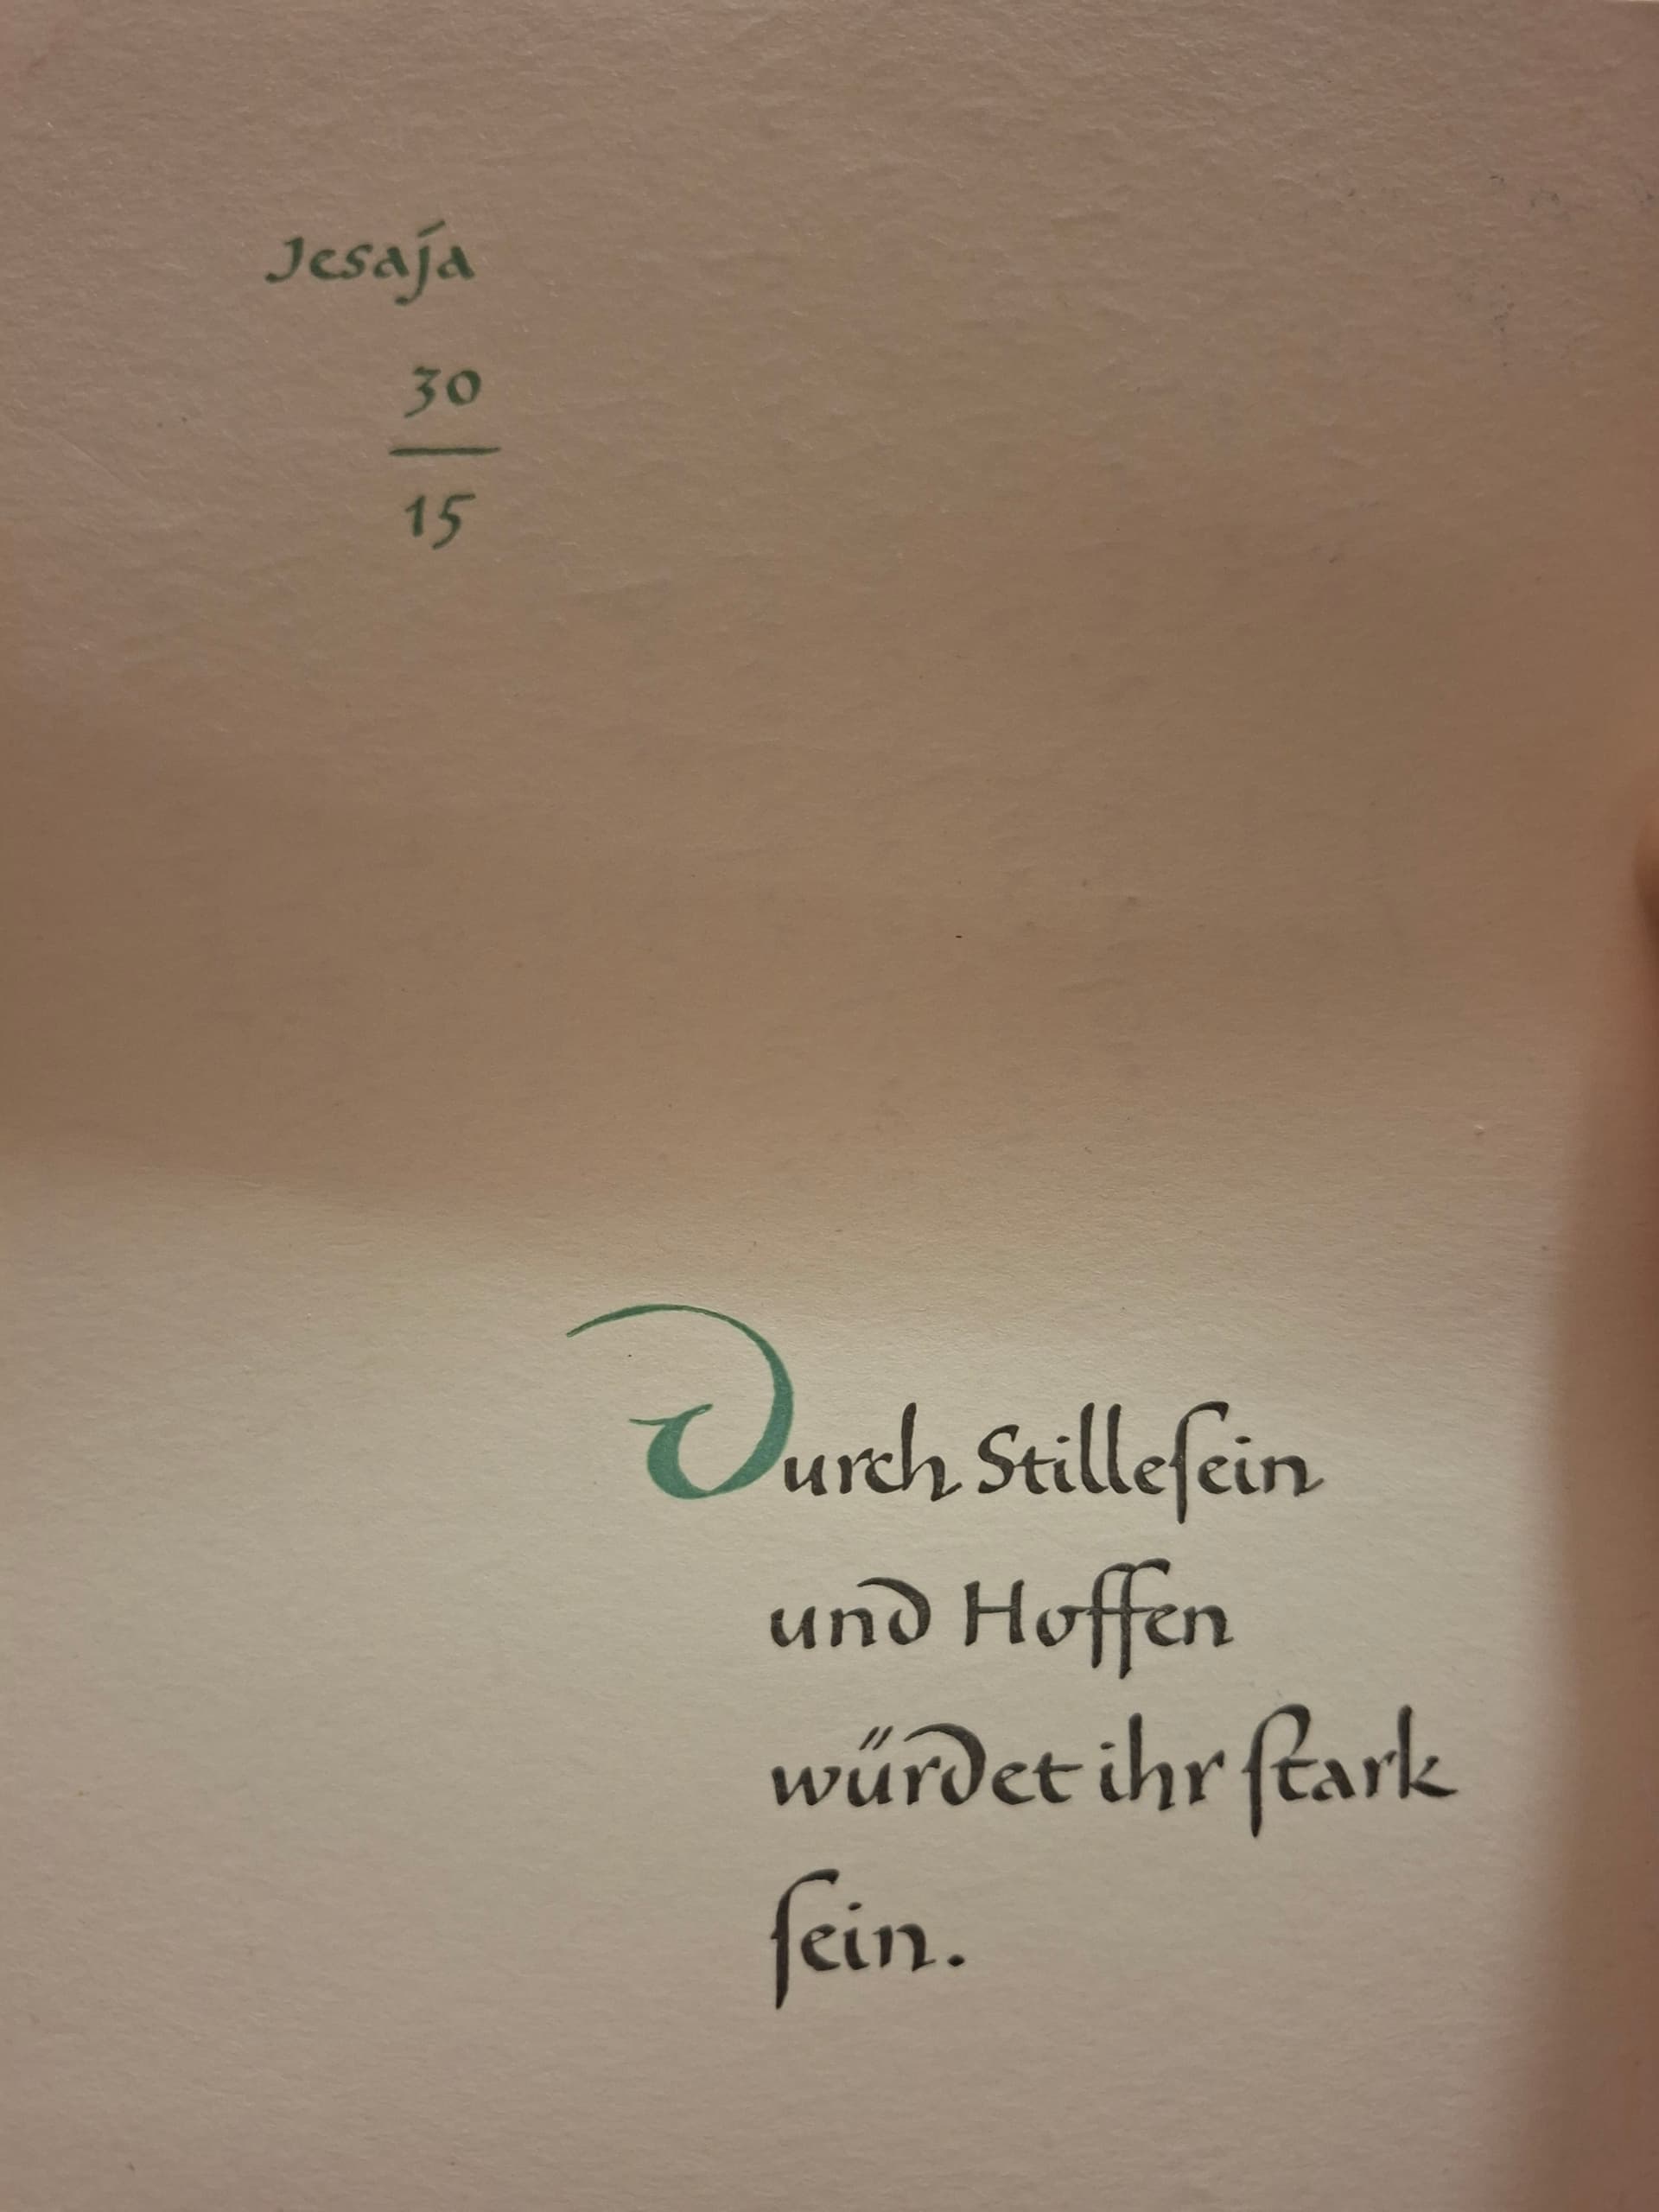 Jesaja
30
15
Durch Stilleſein
und Hoffen
würdet ihr ſtark
ſein.